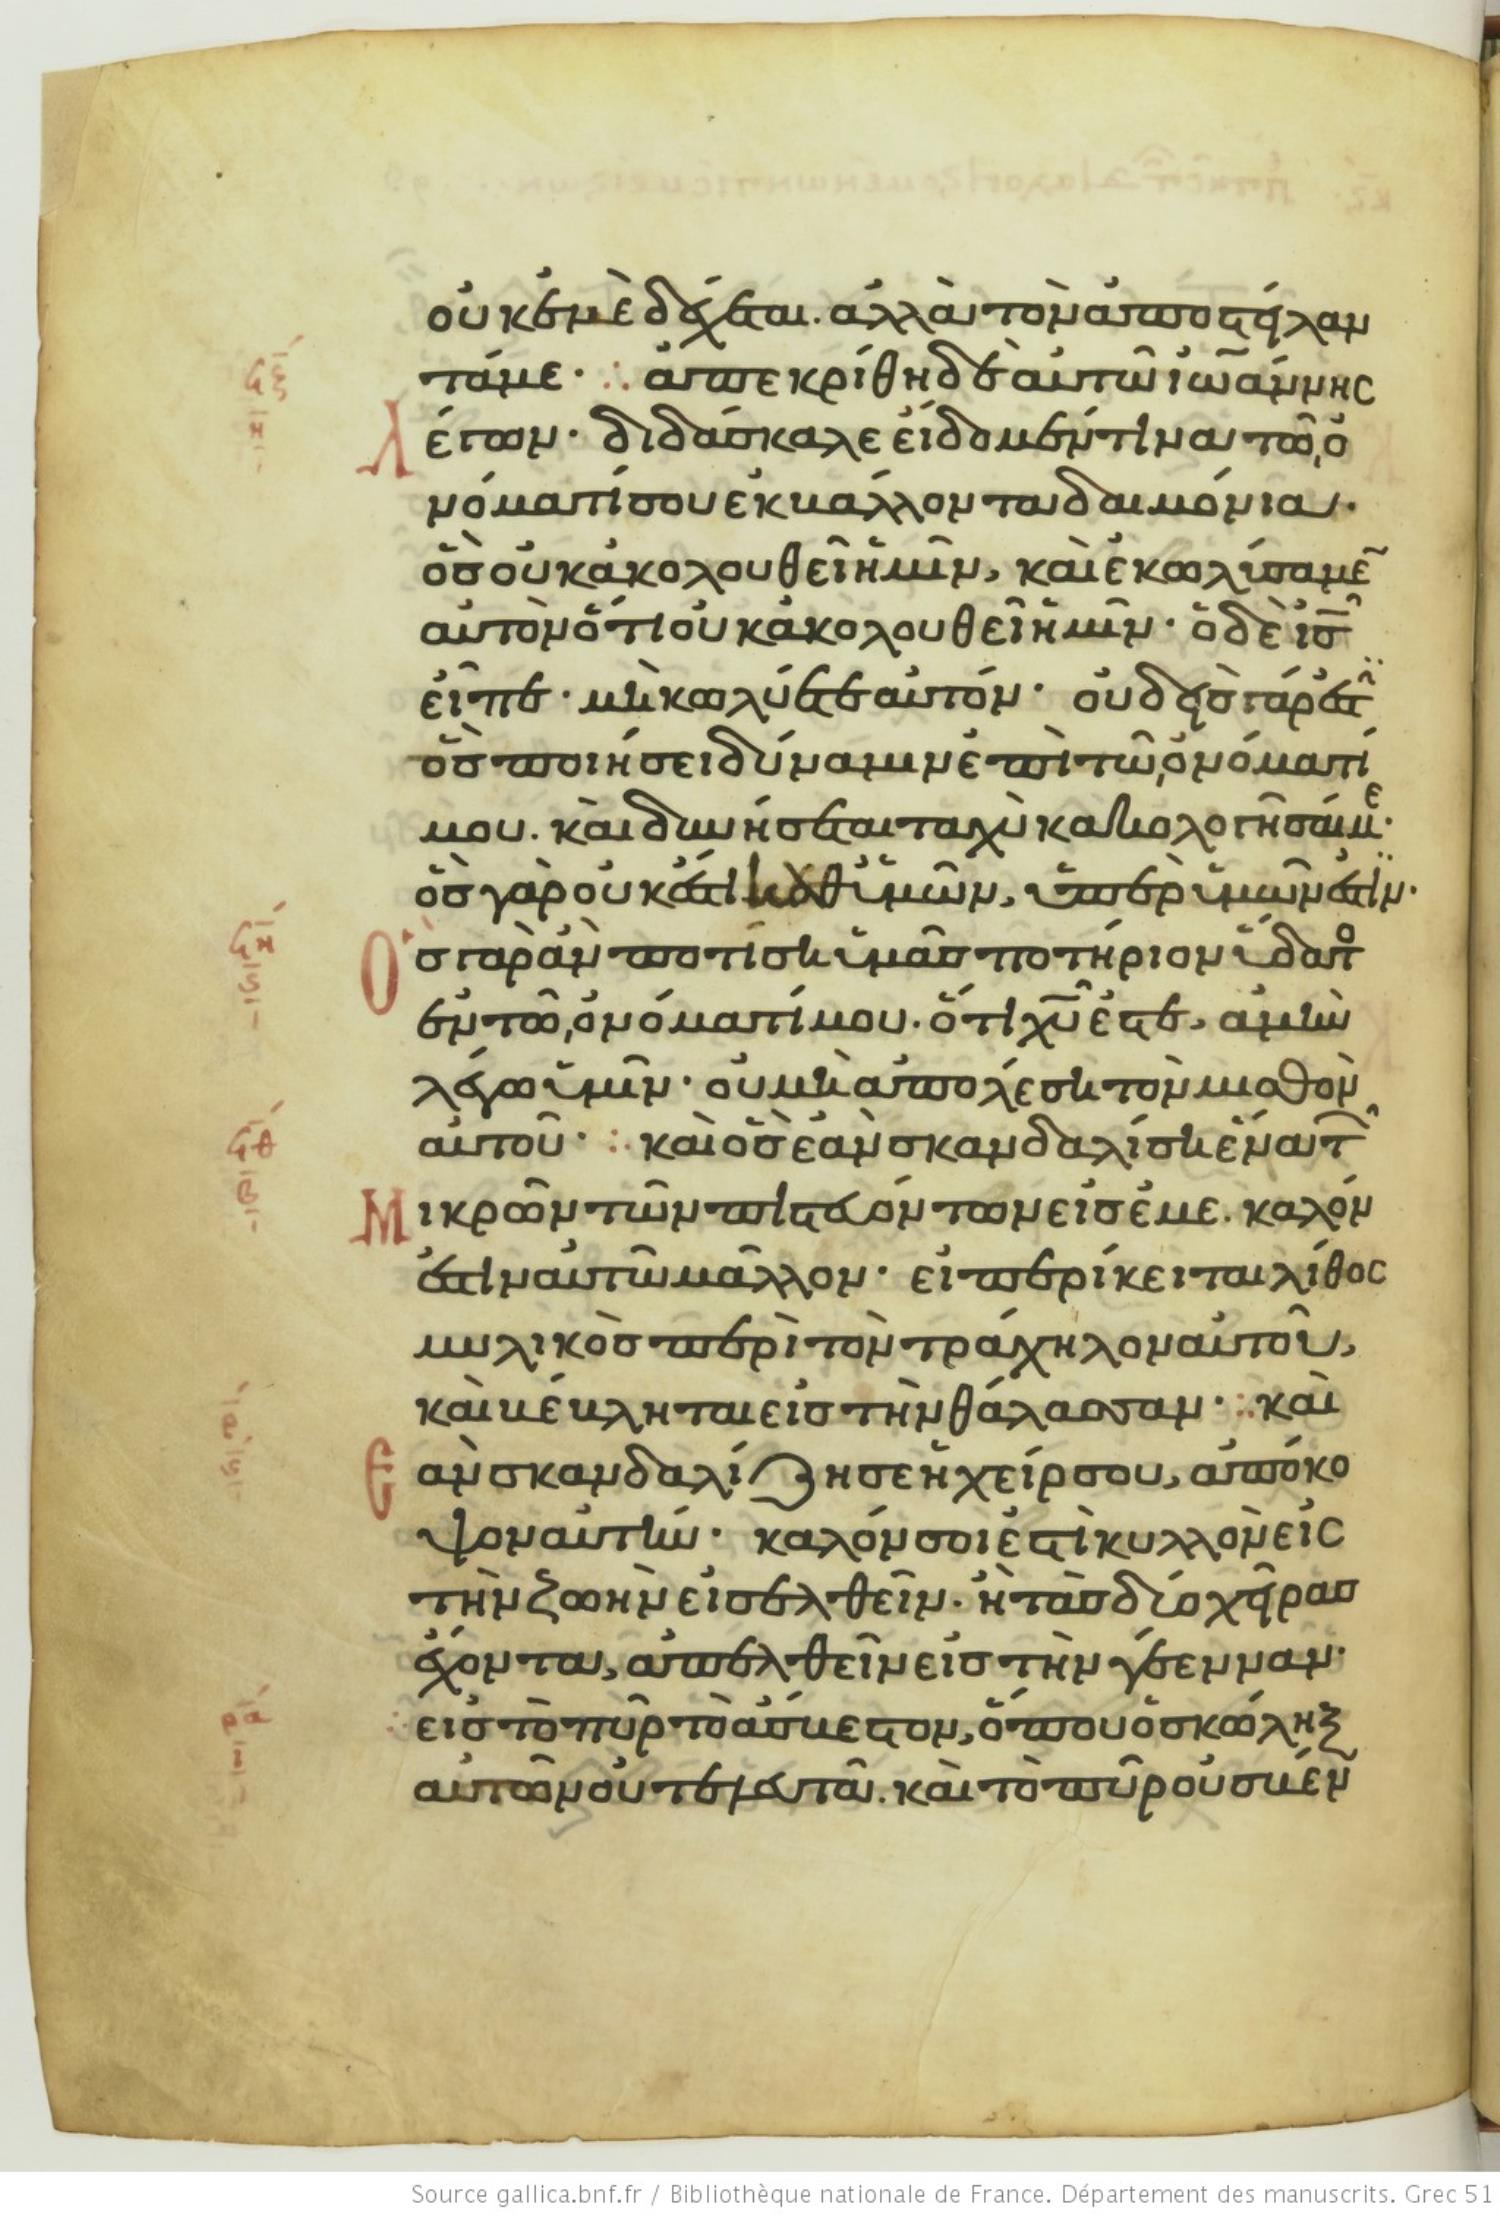 οὐκ ἐμὲ δέχεται. ἀλλὰ τὸν ἀποστείλαν
τά με· ∴ ἀπεκρίθη δὲ αὐτῶ ἰωάννης
λέγων· διδάσκαλε εἴδομέν τινα τῶ ὀ
νόματί σου ἐκβάλλοντα δαιμόνια·
ὃσ οὐκ ἀκολουθεῖ ἡμῖν, καὶ ἐκωλύσαμεν
αὐτὸν ὅτι οὐκ ἀκολουθεῖ ἡμῖν· ὁ δὲ ις
εἶπε· μὴ κωλύετε αὐτόν· οὐδεὶσ γάρ ἐστιν
ὃσ ποιήσει δύναμιν ἐπὶ τῶ ὀνόματί
μου. καὶ δυνήσεται ταχὺ κακολογῆσαί με·
ὃσ γὰρ οὐκ ἔστι καθ ὑμῶν, ὑπὲρ ὑμῶν ἐστιν·
Ὃσ γὰρ ἂν ποτίση ὑμᾶσ ποτήριον ὕδατο
ἐν τῶ ὀνόματί μου. ὅτι χυ ἐστέ, ἀμὴν
λέγω ὑμῖν· οὐ μὴ ἀπολέση τὸν μισθὸν
αὐτοῦ· ∴ καὶ ὃσ ἐὰν σκανδαλίση ἕνα τῶν
Μικρῶν τῶν πιστευόντων εἰσ ἐμε. καλόν
ἐστιν αὐτῶ μᾶλλον· εἰ περίκειται λίθος
μυλικὸσ περὶ τὸν τράχηλον αὐτοῦ,
καὶ βέβληται εἰσ τὴν θάλασσαν· ∴ καὶ
Ἐὰν σκανδαλίζη σε ἡ χείρ σου, ἀπόκο
ψον αὐτήν· καλόν σοι ἐστὶ κυλλὸν εἰς
τὴν ζωὴν εἰσελθεῖν· ἢ τὰσ δύο χεῖρασ
ἔχοντα, ἀπελθεῖν εἰσ τὴν γέενναν·
∴ εἰσ τὸ πῦρ τὸ ἄσβεστον, ὅπου ὁ σκώληξ
αὐτῶν οὐ τελευτᾶ. καὶ τὸ πῦρ οὐ σβέν
Source gallica.bnf.fr / Bibliothèque nationale de France. Département des manuscrits. Grec 51